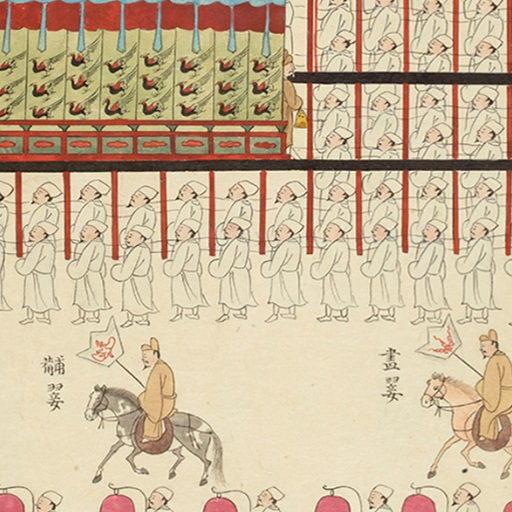 畫翣
黼翣